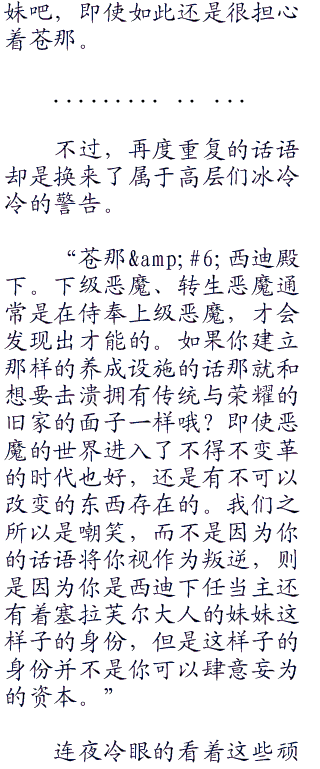 妹吧，即使如此还是很担心
着苍那。
……… ‥ …
不过，再度重复的话语
却是换来了属于高层们冰冷
冷的警告。
“苍那&amp;#6;西迪殿
下。下级恶魔、转生恶魔通
常是在侍奉上级恶魔，才会
发现出才能的。如果你建立
那样的养成设施的话那就和
想要击溃拥有传统与荣耀的
旧家的面子一样哦？即使恶
魔的世界进入了不得不变革
的时代也好，还是有不可以
改变的东西存在的。我们之
所以是嘲笑，而不是因为你
的话语将你视作为叛逆，则
是因为你是西迪下任当主还
有着塞拉芙尔大人的妹妹这
样子的身份，但是这样子的
身份并不是你可以肆意妄为
的资本。”
连夜冷眼的看着这些顽